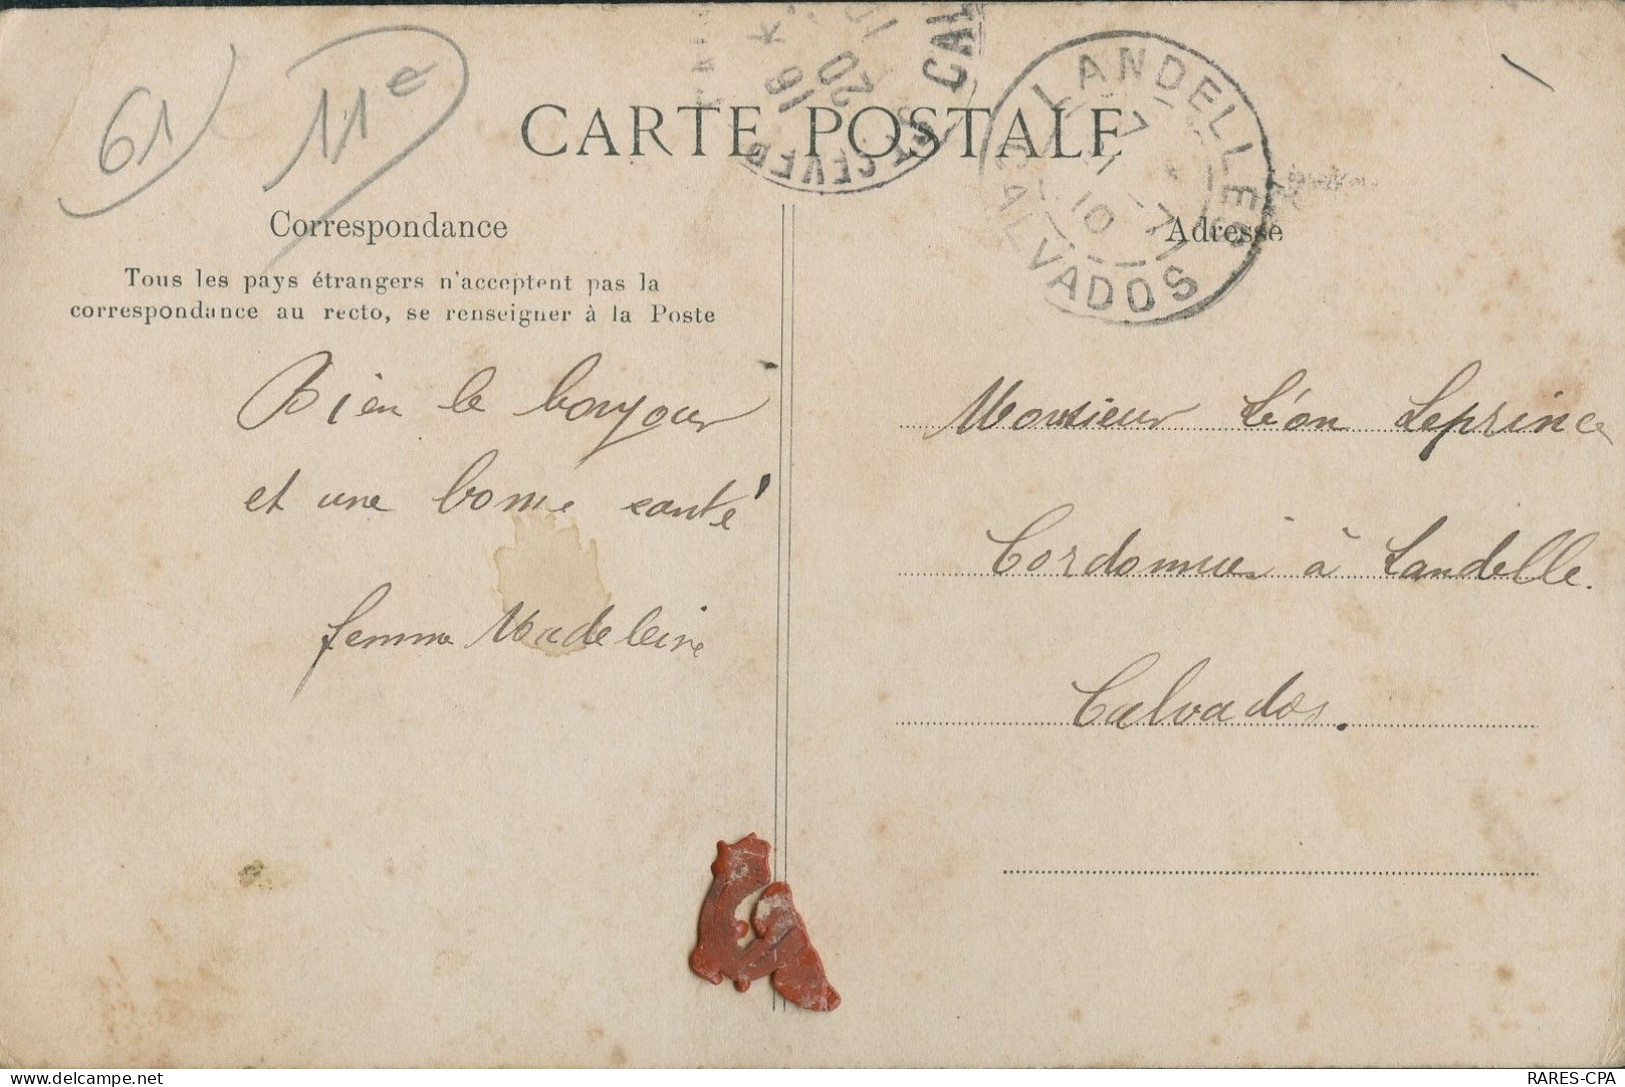 61
11e
CARTE POSTALE
LANDELLES
CALVADOS
7
10
20
16
CAL
Correspondance
Adresse
Tous les pays étrangers n'acceptent pas la
correspondance au recto, se renseigner à la Poste
Bien le bonjour
et une bonne santé
femme Madeleine
Monsieur Léon Leprince
Cordonnier à Landelle.
Calvados.
RARES-CPA